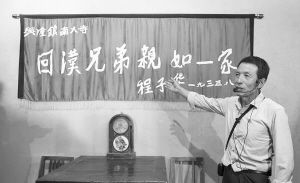 興隆鎮南大寺
回漢兄弟親如一家
程子华 一九三五八